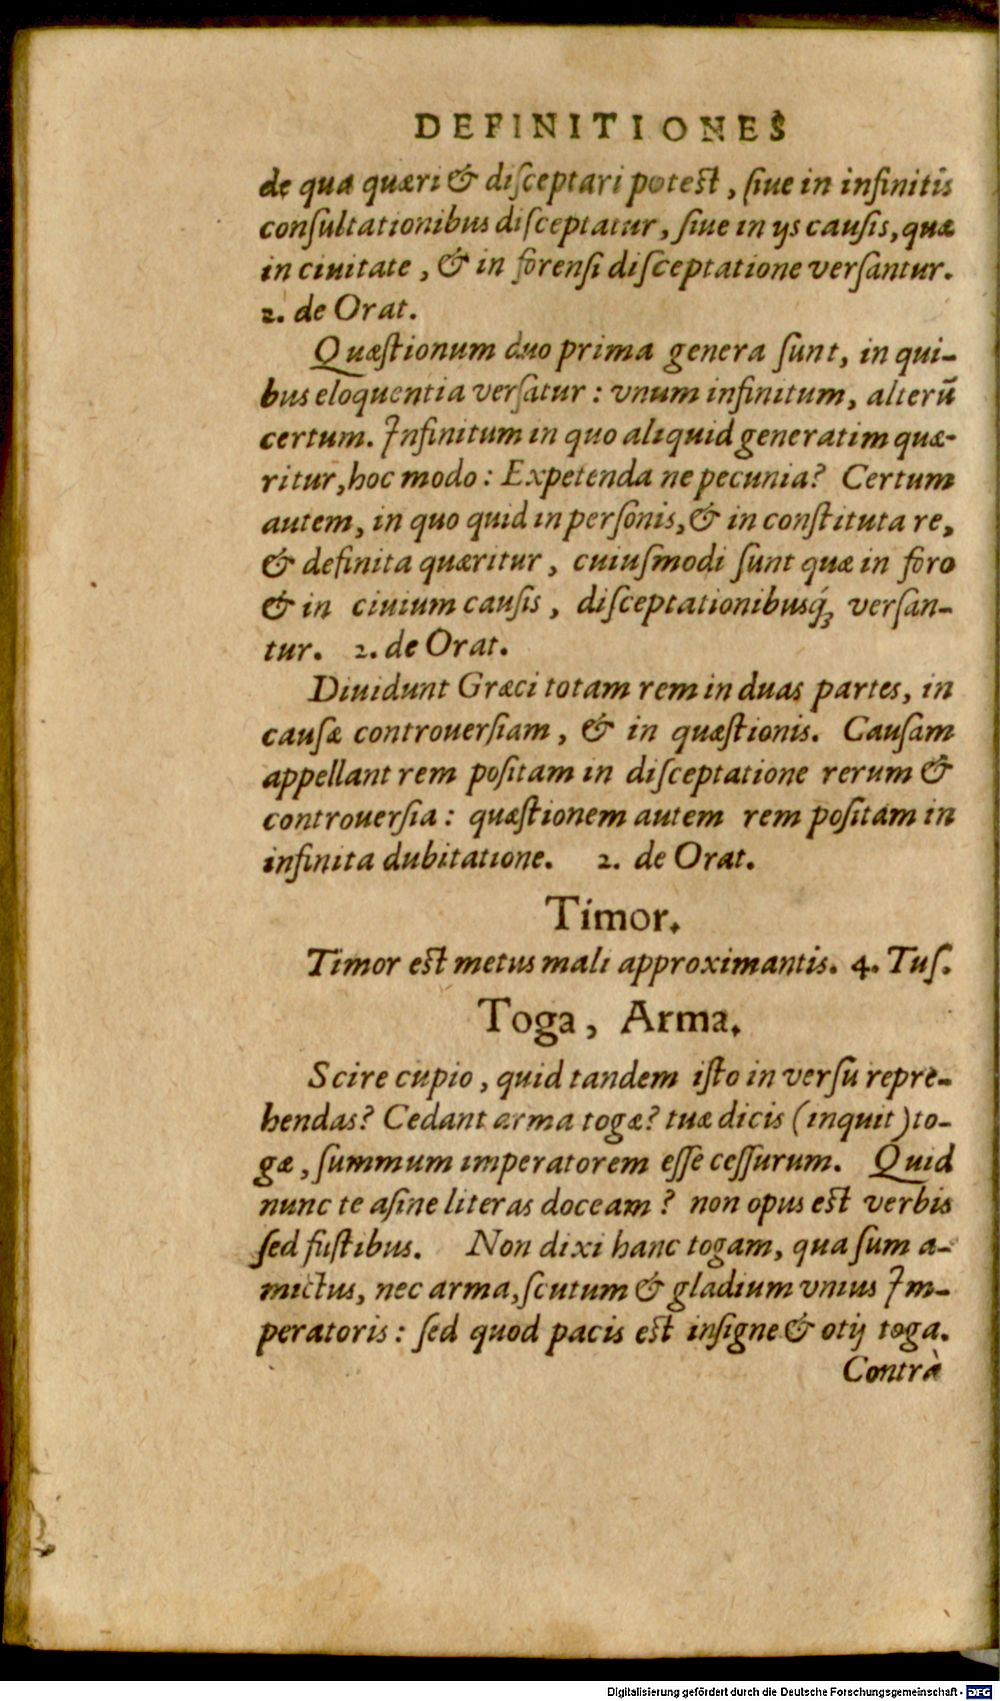 DEFINITIONES
de qua quæri & diſceptari poteſt, ſiue in infinitis
conſultationibus diſceptatur, ſiue in ijs cauſis, quæ
in ciuitate, & in forenſi diſceptatione verſantur.
2. de Orat.
Quæſtionum duo prima genera ſunt, in qui-
bus eloquentia verſatur: vnum infinitum, alterũ
certum. Infinitum in quo aliquid generatim quæ-
ritur, hoc modo: Expetenda ne pecunia? Certum
autem, in quo quid in perſonis, & in conſtituta re,
& definita quæritur, cuiuſmodi ſunt quæ in foro
& in ciuium cauſis, diſceptationibusq́; verſan-
tur. 2. de Orat.
Diuidunt Græci totam rem in duas partes, in
cauſæ controuerſiam, & in quæſtionis. Cauſam
appellant rem poſitam in diſceptatione rerum &
controuerſia: quæſtionem autem rem poſitam in
infinita dubitatione. 2. de Orat.
Timor.
Timor eſt metus mali approximantis. 4. Tuſ.
Toga, Arma.
Scire cupio, quid tandem iſto in verſu repre-
hendas? Cedant arma togæ? tuæ dicis (inquit) to-
gæ, ſummum imperatorem eſſe ceſſurum. Quid
nunc te aſine literas doceam? non opus eſt verbis
ſed fuſtibus. Non dixi hanc togam, qua ſum a-
mictus, nec arma, ſcutum & gladium vnius Im-
peratoris: ſed quod pacis eſt inſigne & otij toga.
Contrà
Digitalisierung gefördert durch die Deutsche Forschungsgemeinschaft - DFG